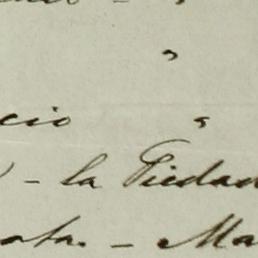 "
cio "
- la Piedad
ata. - Ma